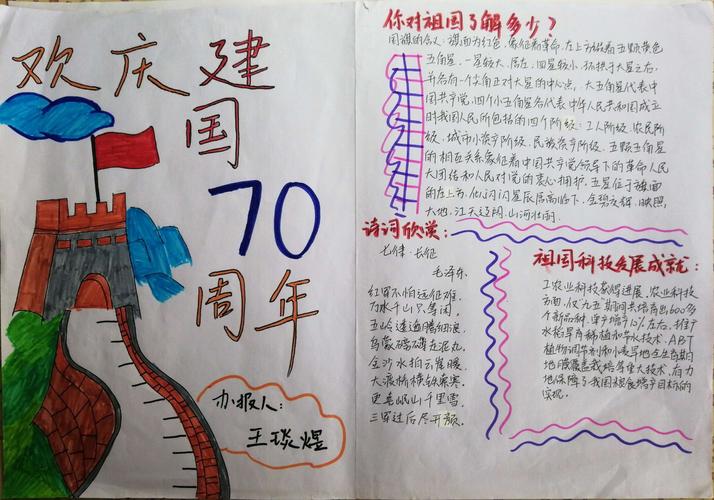 欢庆建
国
70
周年
办报人:
王琰煜
你对祖国了解多少?
国旗的含义:旗面为红色,象征着革命,左上方缀着五颗黄色
五角星,一星较大,居左,四星较小,环拱于大星之右,
并各有一个尖角正对大星的中心点,大五角星代表中
国共产党,四个小五角星各代表中华人民共和国成立
时我国人民所包括的四个阶级:工人阶级、农民阶
级、城市小资产阶级、民族资产阶级。五颗五角星
的相互关系象征着中国共产党领导下的革命人民
大团结和人民对党的衷心拥护。五星位于旗面
的左上方,似闪闪星辰居高临下,金碧交辉,映照
大地,江天辽阔,山河壮丽。
诗词欣赏:
七律·长征
毛泽东
红军不怕远征难,
万水千山只等闲。
五岭逶迤腾细浪,
乌蒙磅礴走泥丸。
金沙水拍云崖暖,
大渡桥横铁索寒。
更喜岷山千里雪,
三军过后尽开颜。
祖国科技发展成就:
工农业科技蒙得进展,农业科技
方面,仅九五期间共培育出600多
个新品种,单产增产10%左右,推广
水稻旱育稀植和节水技术,ABT
植物调节剂和小麦旱地全生育期
地膜覆盖栽培等重大技术,有力
地保障了我国粮食增产目标的
实现。